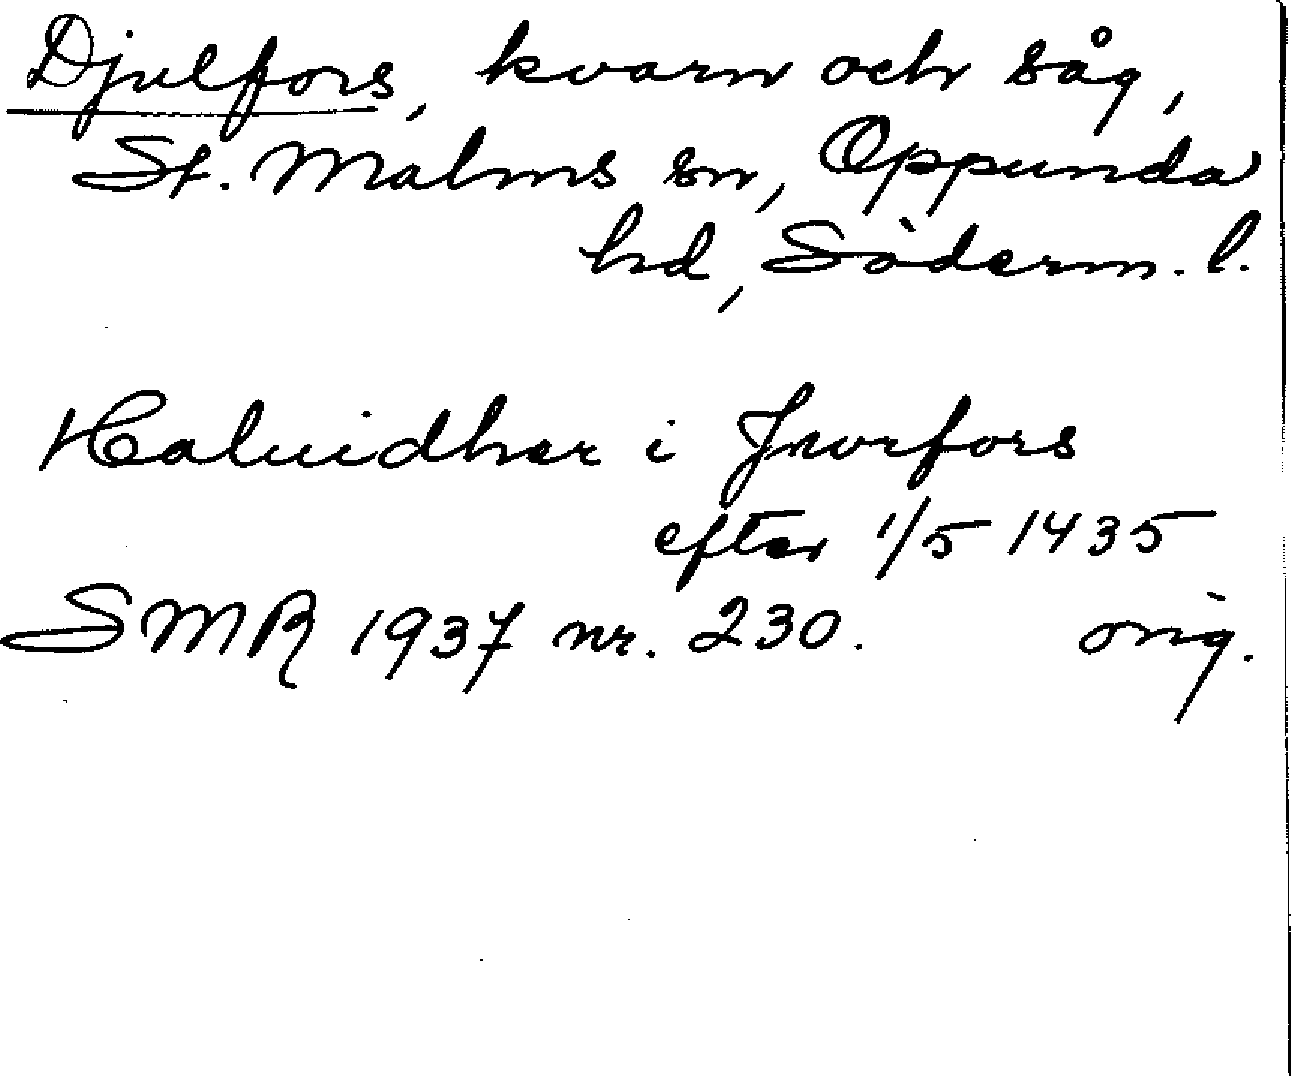 Djulfors, kvarn och såg,
St. Malms sn, Oppunda
hd, Söderm. l.
Haluidher i
efter 1/5 1435
SMR 1937 nr. 230. orig.